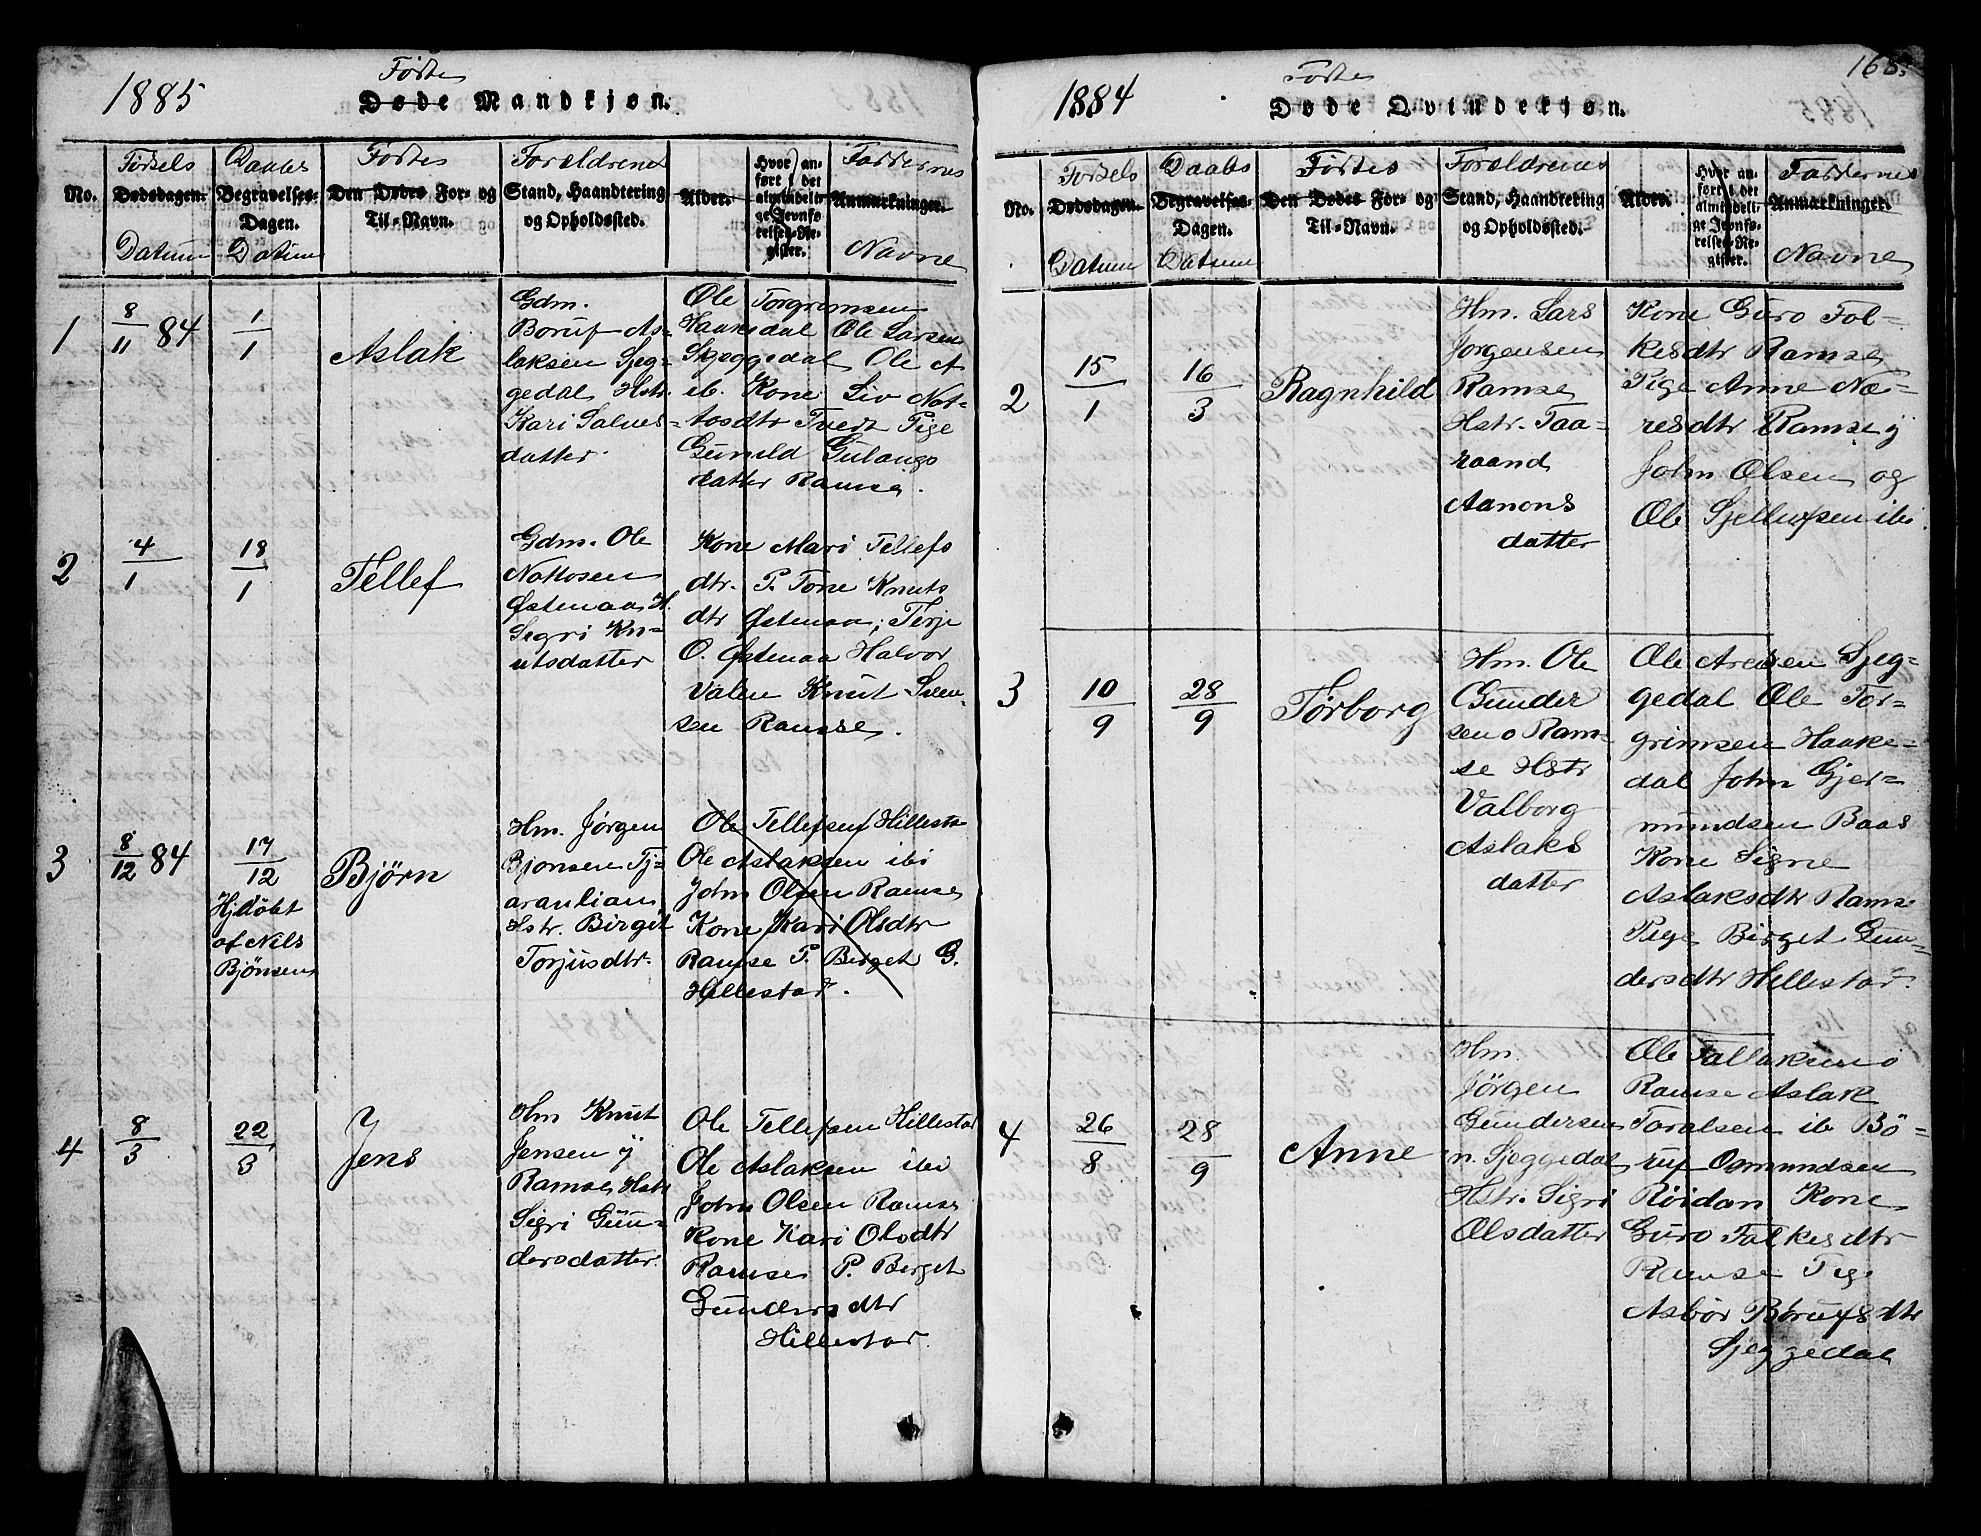 1885
Fødte
Døde Mandkjøn.
No.
Fødsels
Dødsdagen.
Datum
Daabs
Begravelses-
Dagen.
Datum
Fødtes
Den Dødes For- og
Til-Navn.
Forældrenes
Stand, Haandtering
og Opholdssted.
Alder.
Hvor an-
ført i det
almindeli-
ge Jevnfø-
relses-Re-
gister.
Faddernes
Anmærkninger.
Navne
1
8/11 84
1/1
Aslak
Gdm.
Boruf As-
laksen Sjeg-
gedal Hstr.
Kari Salves-
datter.
Ole Torgrimsen
Haaksdal Ole Larsen
Skjeggedal Ole A
ib. Kone Liv Not-
tosdtr Tvedt Pige
Gunild
datter Ramse.
2
4/1
18/1
Tellef
Gdm. Ole
Nottosen
Østenaa H.
Segri Kn-
utsdatter
Kone Mari Tellefs
dtr. P. Tone Knuts
dtr Østenaa; Terje
O. Østenaa Halvor
Valen Knut
sen Ramse.
3
8/12 84
17/12
Hjdøbt
af Nils
Bjönsen
Bjørn
Hm. Jørgen
Bjonsen Tj-
aranlian
Hstr. Birgit
Torjusdtr.
Ole Tellefsen Hillestø
Ole Aslaksen ibi
John Olsen Ramse
Kone Kari Olsdtr
Ramse P. Berget G.
Hillestør.
4
8/3
22/3
Jens
Hm Knut
Jensen ÿ
Ramse Hstr
Sigri Gun-
dersdatter.
Ole Tellefsen Hillestør
Ole Aslaksen ibi
John Olsen Ramse
Kone Kari Olsdtr
Ramse P. Berget
Gundersdtr
Hillestør.
1884
Fødte
Døde Qvindekjøn.
165.
No.
Fødsels
Dødsdagen.
Datum
Daabs
Begravelses-
Dagen.
Datum
Fødtes
Den Dødes For- og
Til-Navn.
Forældrenes
Stand, Haandtering
og Opholdssted.
Alder.
Hvor an-
ført i det
almindeli-
ge Jevnfø-
relses-Re-
gister.
Faddernes
Anmærkninger.
Navne
2
15/1
16/3
Ragnhild
Hm. Lars
Jorgensen
Ramse
Hstr. Taa-
raand
Aanons
datter
Kone Guro Fol-
kesdtr Ramse
Pige Anne Næ-
resdtr Ramse ÿ
John Olsen og
Ole ibi.
3
10/9
28/9
Tørborg
Hm. Ole
Gunder
sen o Ram-
se Hstr
Valborg
Aslaks
datter
Ole Aresen Sjeg-
gedal Ole Tor-
grimsen Haake-
dal John Gjer-
mundsen Baas
Kone Signe
Aslaksdtr Ramse
Pige Birget Gun-
dersdtr Hillestør.
4
26/8
28/9
Anne
Hm.
Jörgen
Gundersen
n. Sjeggedal
Hstr. Sigri
Olsdatter
Ole Tallaksen o
Ramse Aslak
Toralsen ib Bö-
ruf Osmundsen
Röidan Kone
Guro Folkesdtr
Ramse Pige
Asbör Børufsdtr
Sjeggedal